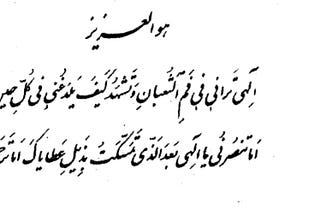 هو العزيز
الهی ترانی فی فم الثعبان و تشهد کیف یلدغنی فی کل حین
اما تنصرنی یا الهی بعد الذی تمسکت بذیل عطایاک اما